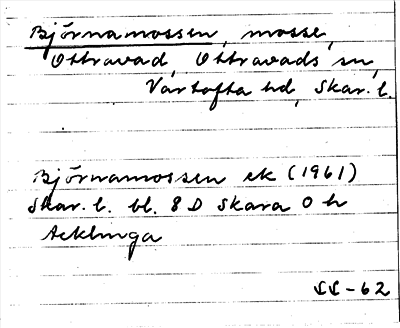 Björnamossen, mosse,
Ottravad, Ottravads sn,
Vartofta hd, Skar. l.
Björnamossen ek (1961)
Skar. l. bl. 8 D Skara 0 h
Acklinga
SS-62